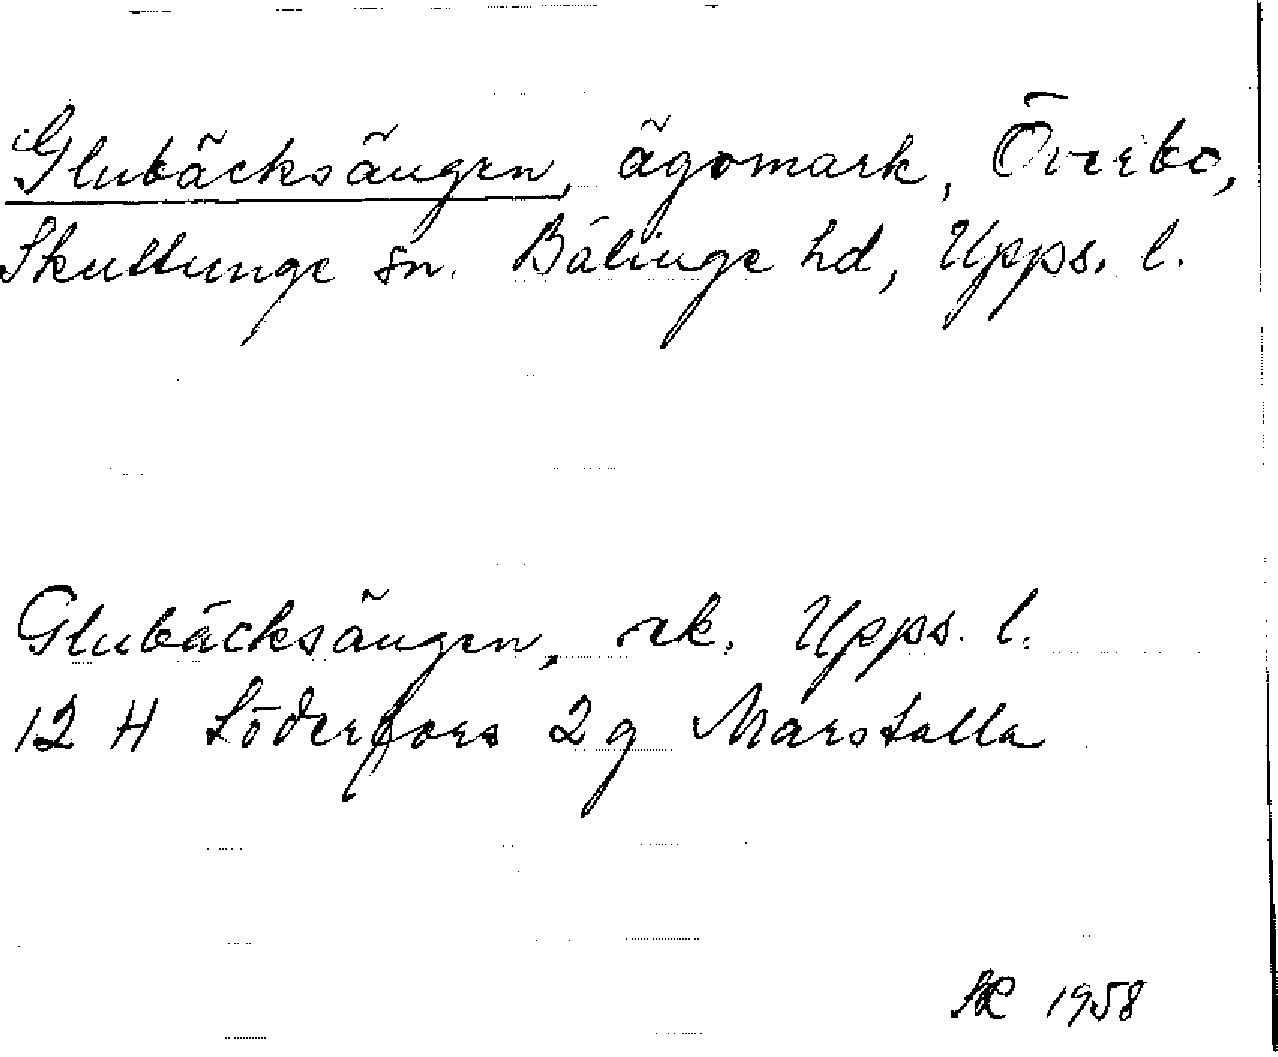 Glubäcksängen, ägomark, Överbo,
Skuttunge sn. Bälinge hd, Upps. l.
Glubäcksängen, rk. Upps. l.
12 H Söderfors 2 g Marstalla
1958